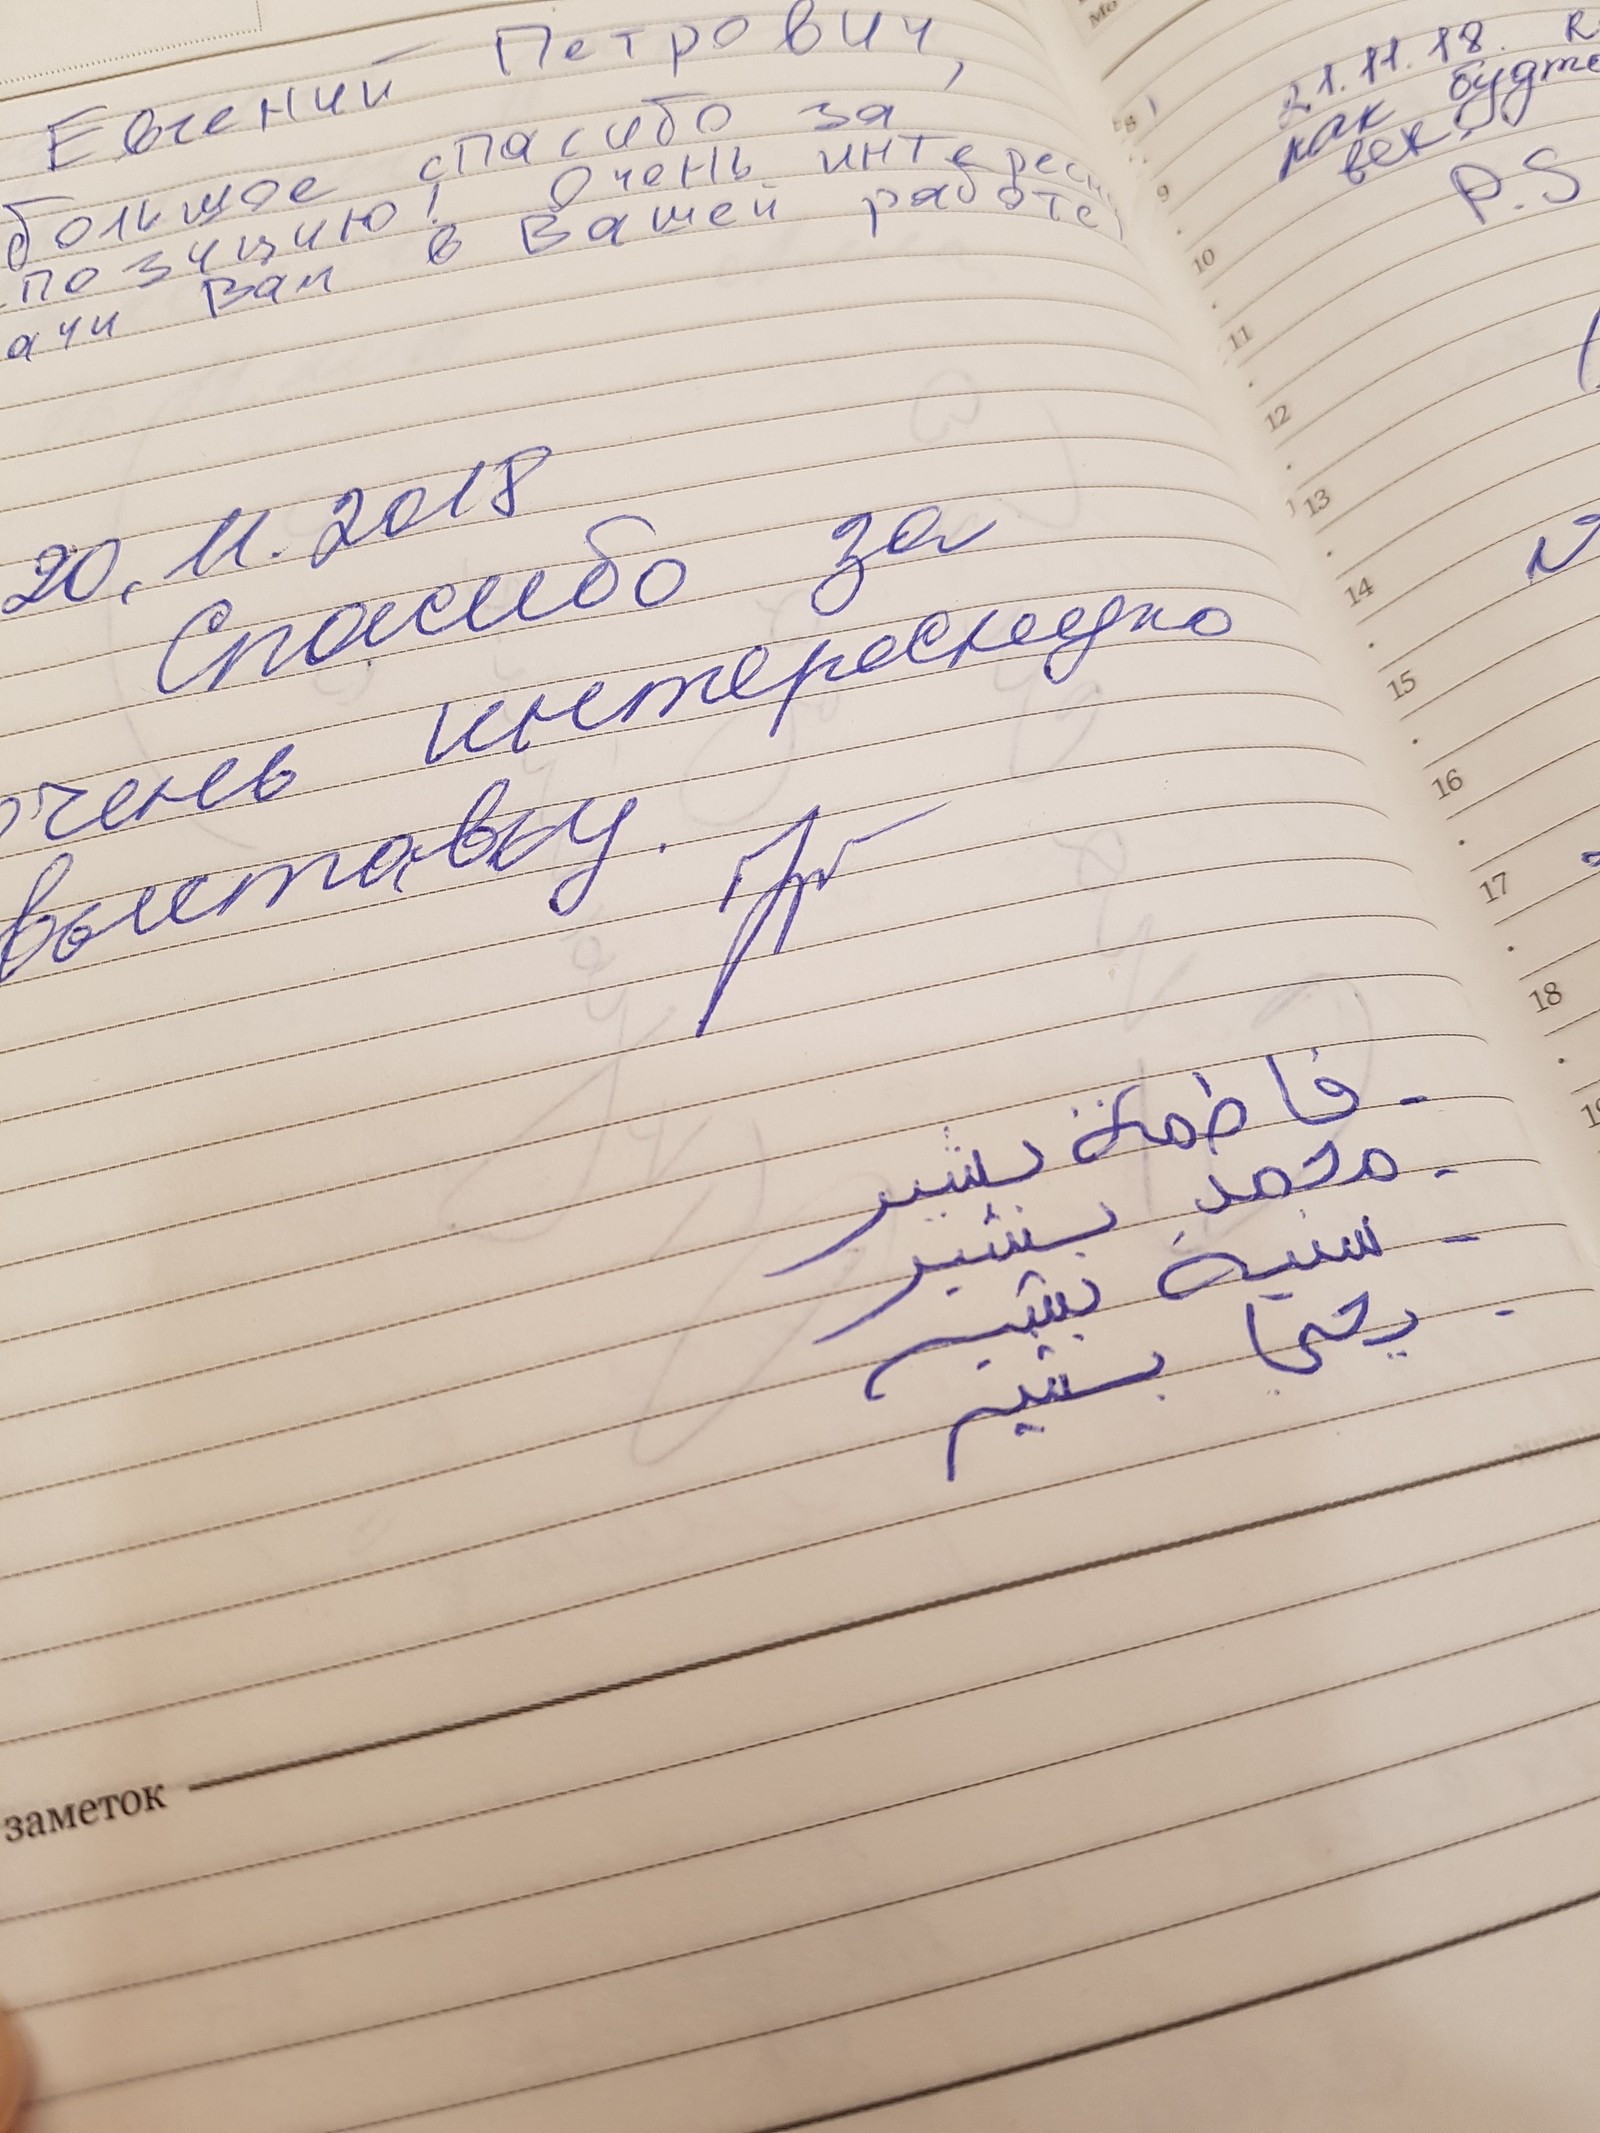 Евгений Петрович,
большое спасибо за
позицию! Очень интерес
ачи Вам в Вашей работе
20.11.2018
Спасибо за
очень интересную
выставку.
- فاطمة بشير
- محمد بشير
- سنية بشير
- يحيى بشير
заметок
21.11.18.
как будто
век
P.S
8
9
10
11
12
13
14
15
16
17
18
19